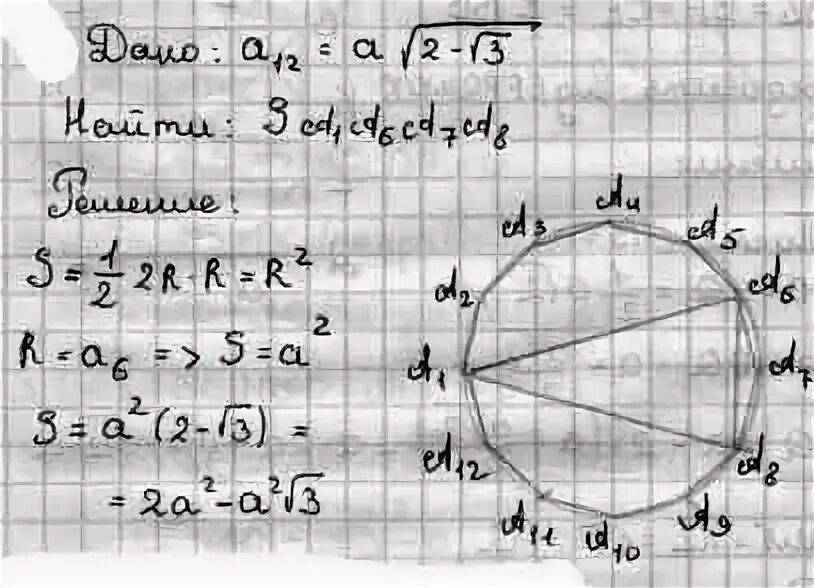 Дано: a₁₂ = a √(2-√3)
Найти: S A₁A₆A₇A₈
Решение:
S = 1/2 2R R = R²
R = a₆ => S = a²
S = a² (2-√3) =
= 2a² - a²√3
A₄
A₃
A₅
A₂
A₆
A₁
A₇
A₁₂
A₈
A₁₁
A₁₀
A₉